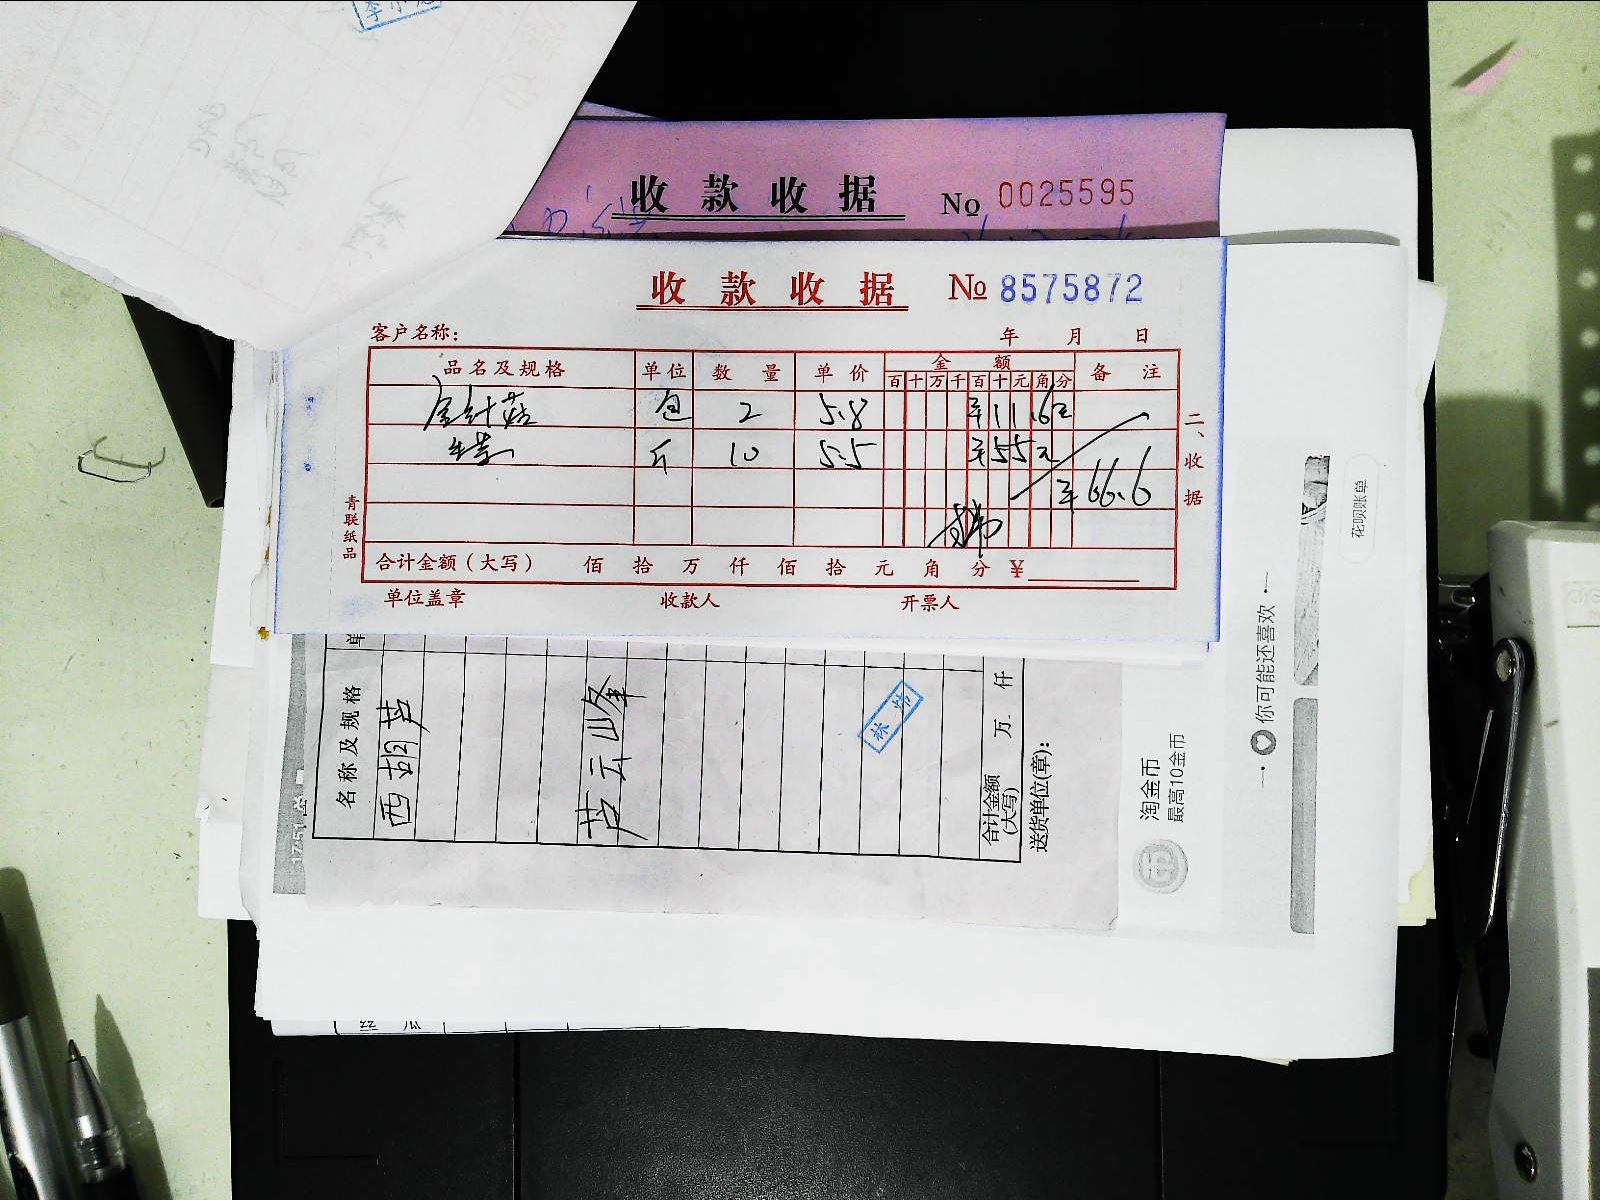 收款收据 No 0025595
收款收据 No 8575872
客户名称: 年 月 日
品名及规格 单位 数量 单价 金额 备注
百 十 万 千 百 十 元 角 分
金针菇 包 2 5.8 11.6元
斤 10 5.5 55元
66.6
二、收据
青联纸品
合计金额(大写) 佰 拾 万 仟 佰 拾 元 角 分 ¥
单位盖章 收款人 开票人
名称及规格 单
西葫芦
芦云峰
合计金额(大写) 万 仟
送货单位(章):
淘金币
最高10金币
你可能还喜欢
花呗账单
丝瓜